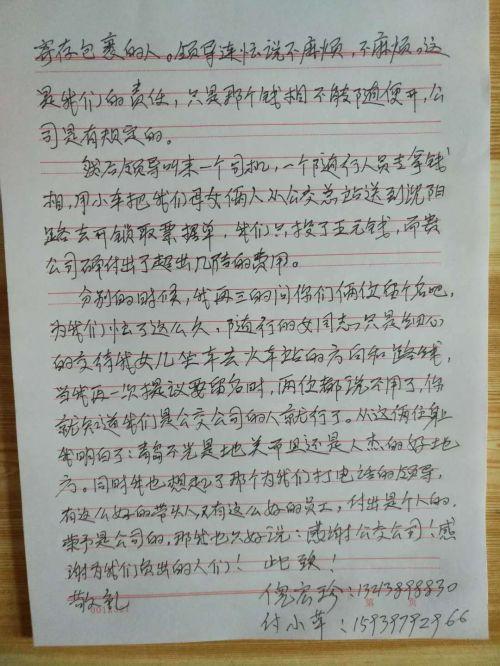 寄存包裹的人。领导连忙说不麻烦，不麻烦。这
是我们的责任，只是那个钱相不能随便开，公
司是有规定的。
然后领导叫来一个司机，一个随行人员去拿钱
相，用小车把我们母女俩人从公交总站送到沈阳
路去开锁取票据单，我们只投了五元钱，而贵
公司确付出了超出几陪的费用。
分别的时候，我再三的问你们俩位留个名吧，
为我们忙了这么久，随行的女同志只是细心
的交待我女儿坐车去火车站的方向和路线，
当我再一次提议要留名时，两位都说不用了，你
就知道我们是公交公司的人就行了。从这俩位身上
我明白了：青岛不光是地美而且还是人杰的好地
方。同时我也想起了那个为我们打电话的领导，
有这么好的带头人，又有这么好的员工，付出是个人的，
荣予是公司的，那我也只好说：感谢公交公司！感
谢为我们负出的人们！ 此致！
敬礼 倪宏珍：13213898830
付小苹：15939792966